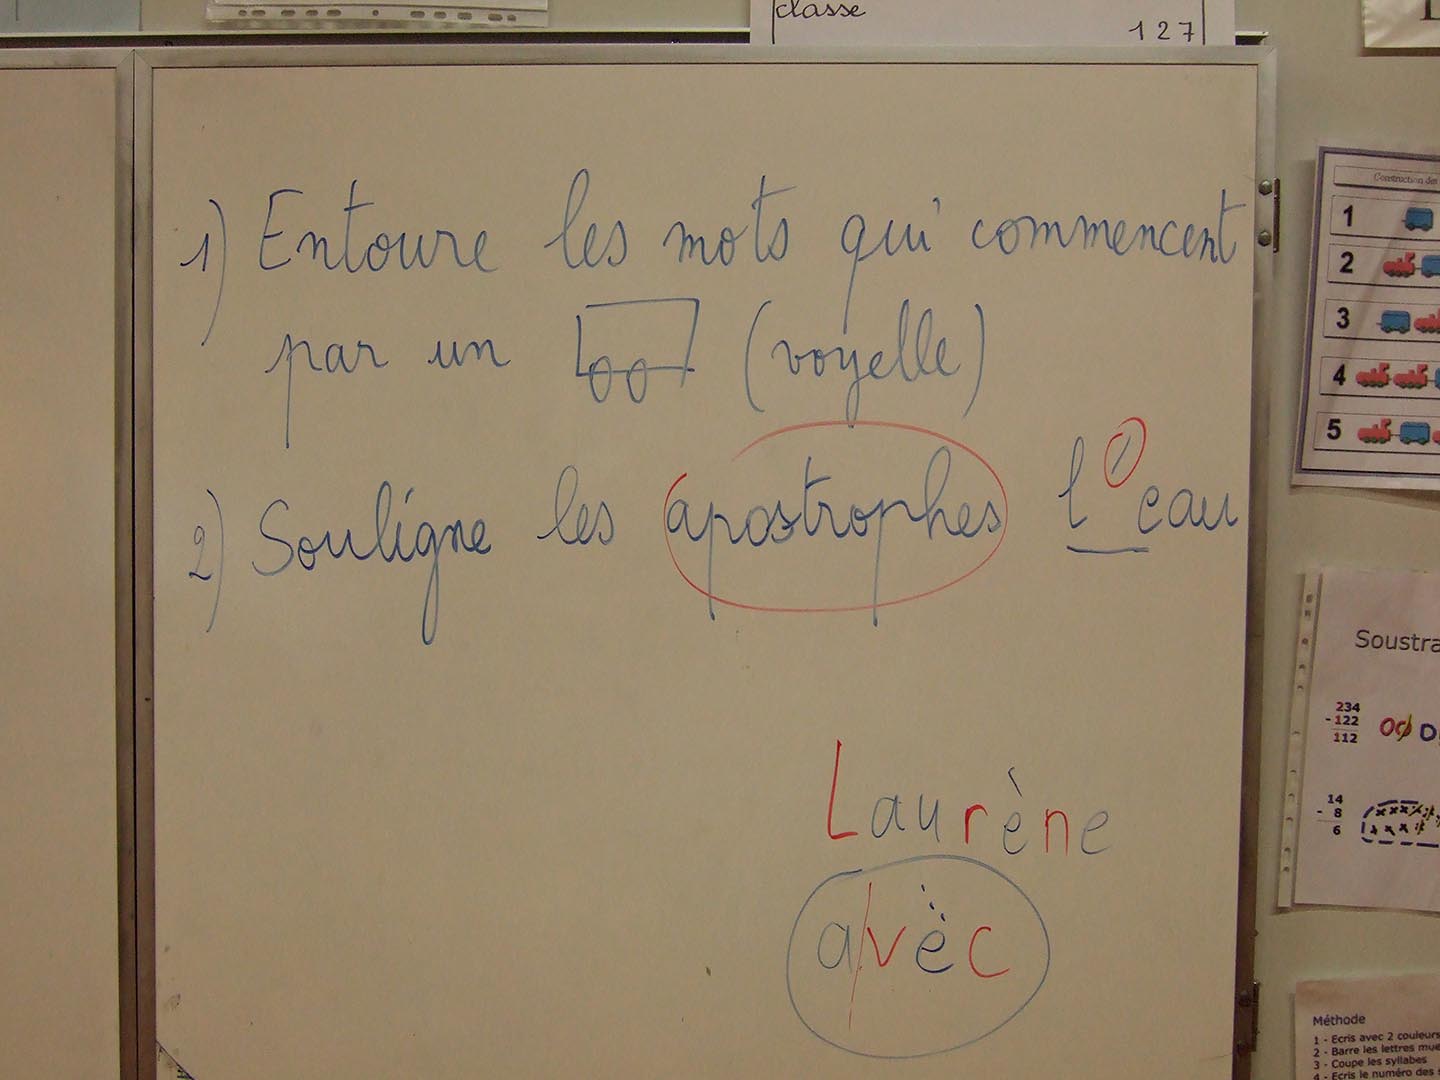 classe
127
1) Entoure les mots qui commencent
par un (voyelle)
2) Souligne les apostrophes l'eau
Laurène
avëc
Construction des
1
2
3
4
5
Soustra
234
-122
112
14
- 8
6
Méthode
1 - Ecris avec 2 couleurs
2 - Barre les lettres mue
3 - Coupe les syllabes
4 - Ecris le numéro des s